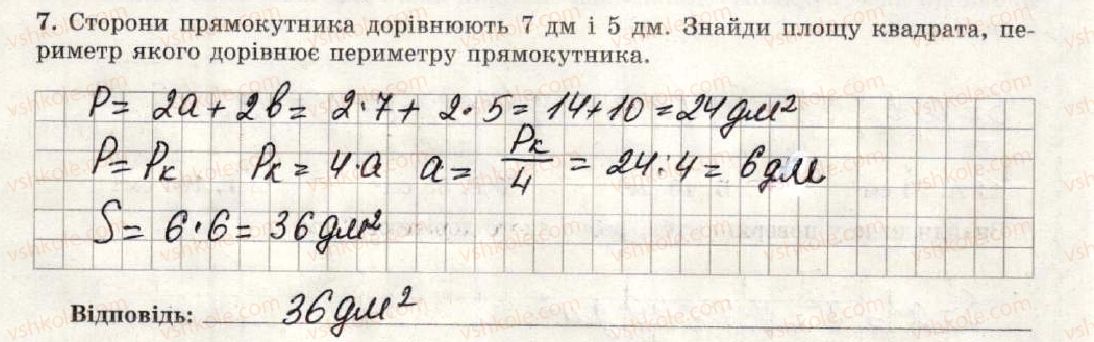 7. Сторони прямокутника дорівнюють 7 дм і 5 дм. Знайди площу квадрата, пе-
риметр якого дорівнює периметру прямокутника.
P = 2a + 2b = 2 · 7 + 2 · 5 = 14 + 10 = 24 дм²
P = Pк Pк = 4 · a a = Pк/4 = 24 : 4 = 6 дм
S = 6 · 6 = 36 дм²
Відповідь: 36 дм²